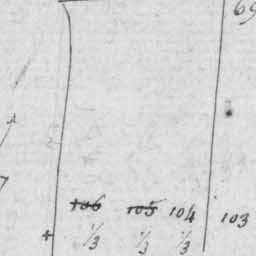 69
7
106 105 104 103
+ 1/3 1/3 1/3